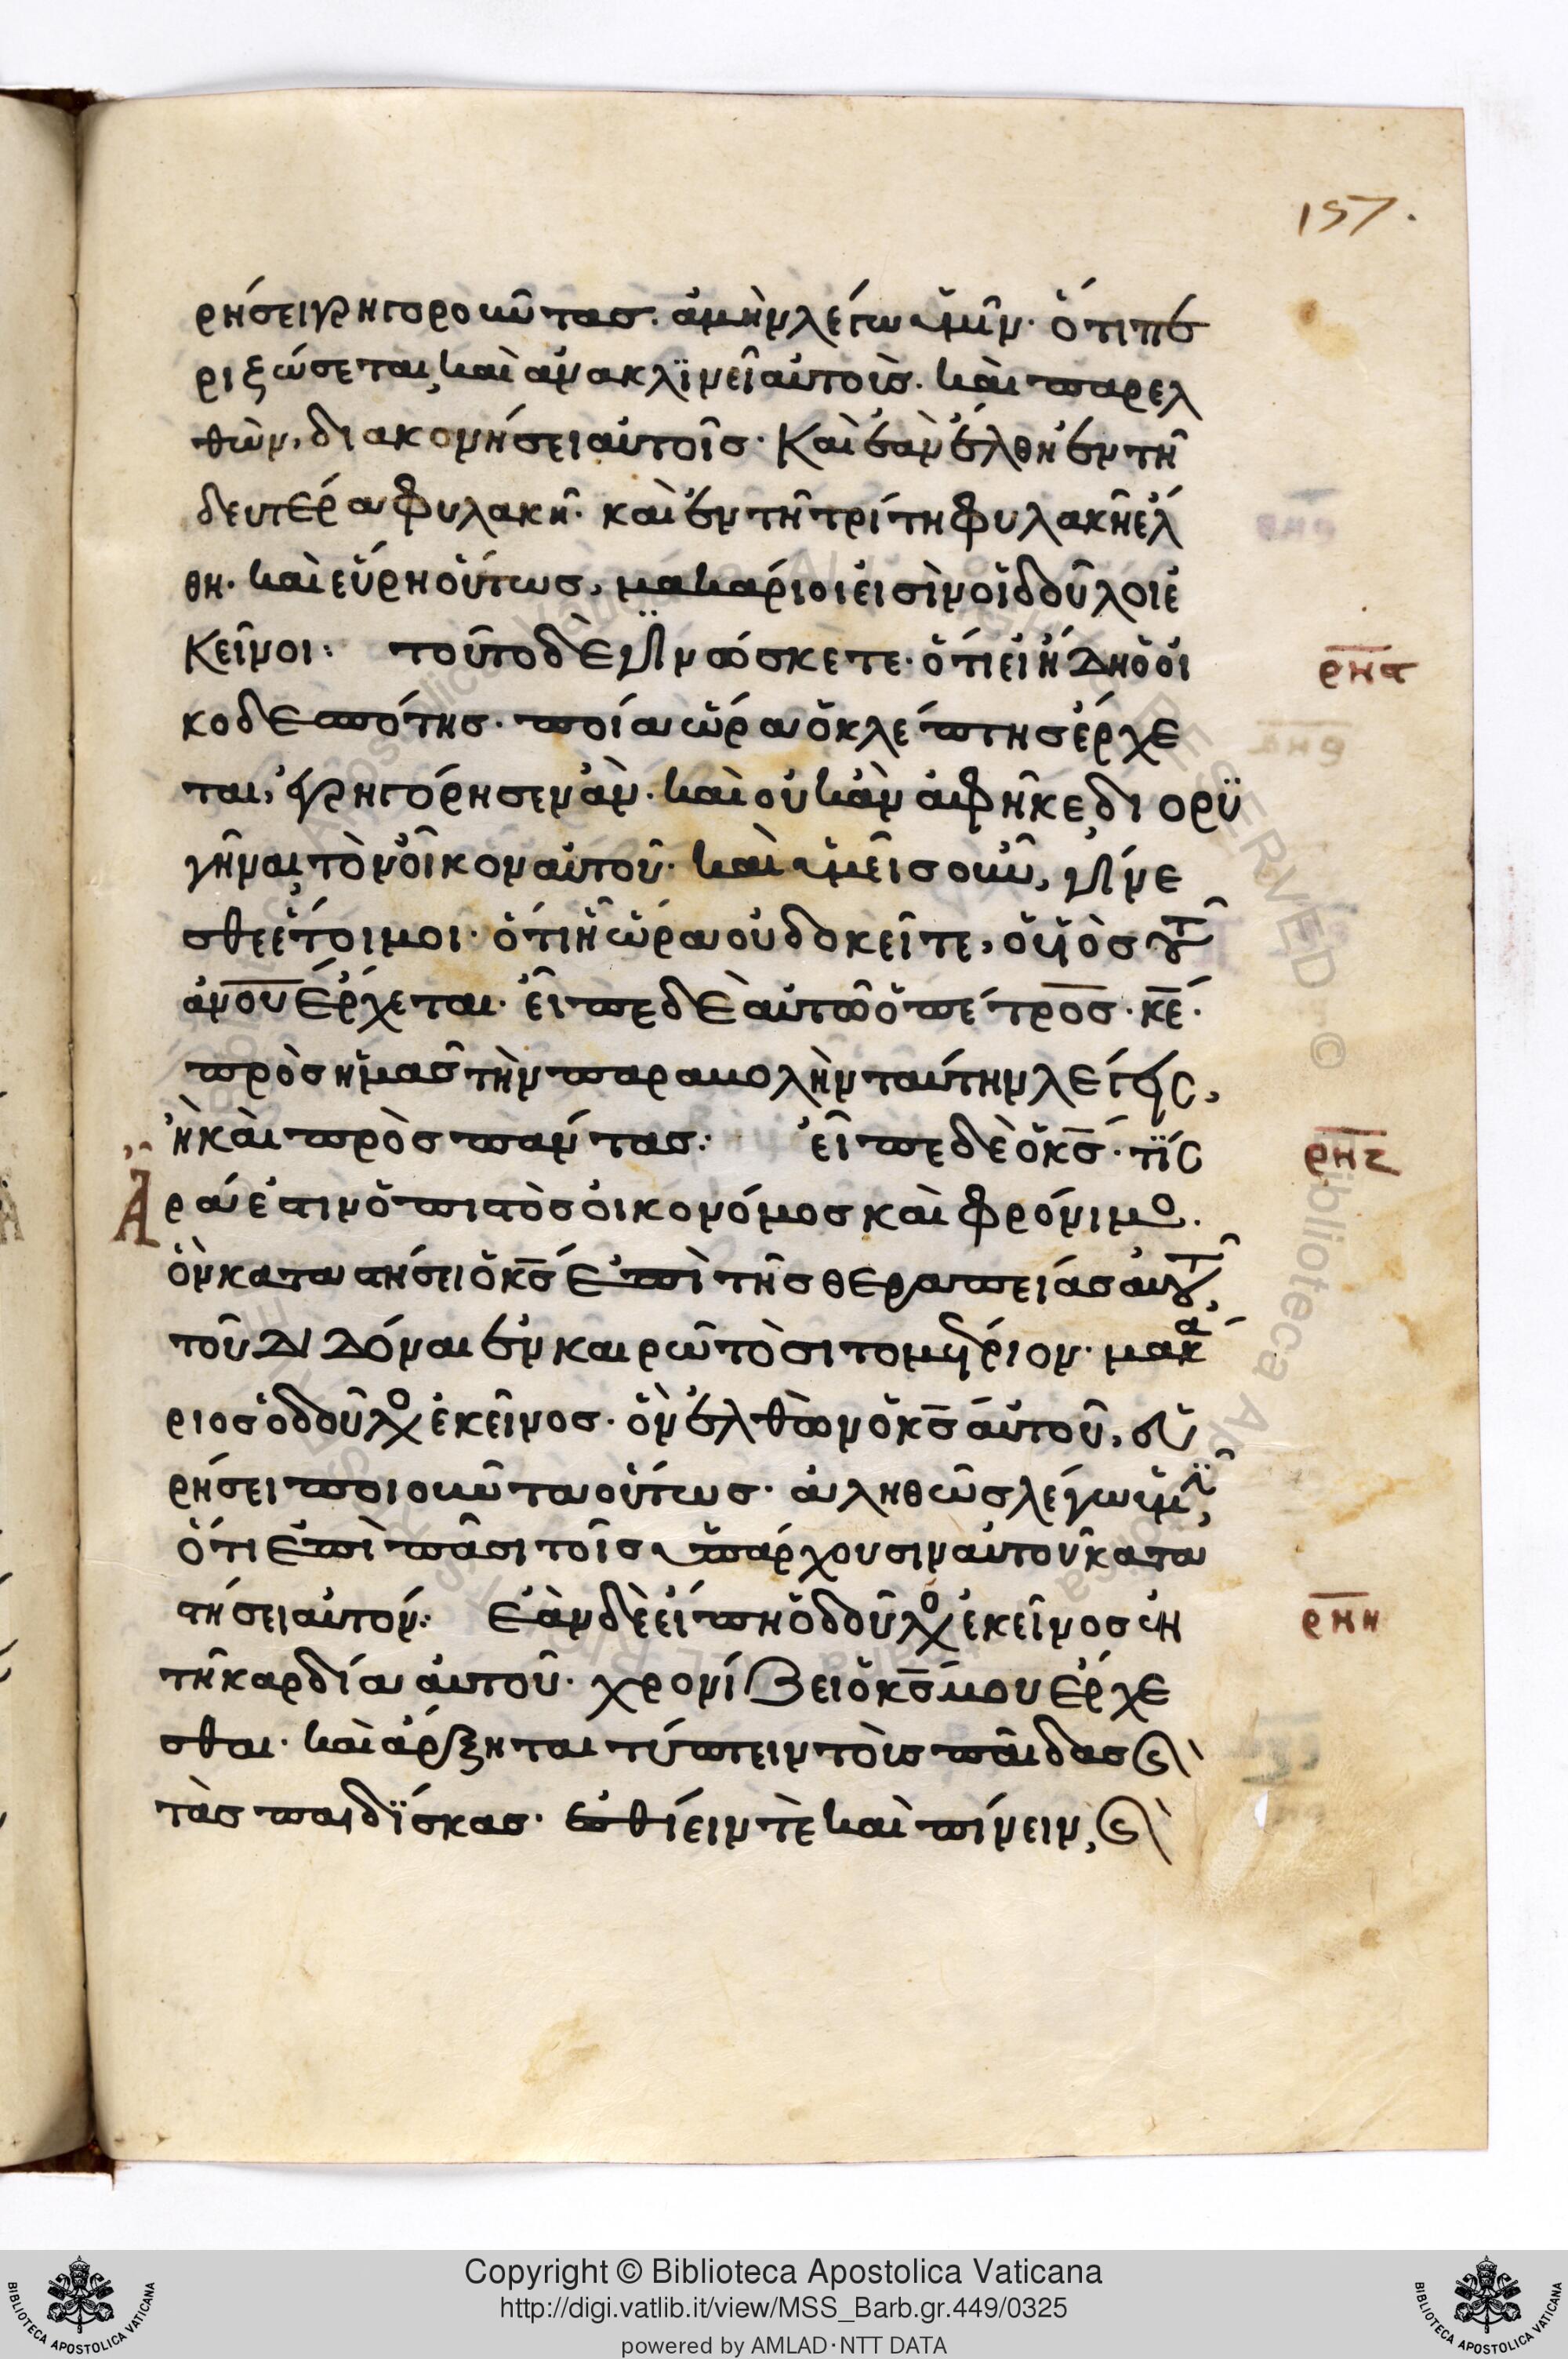 157.
ρήσει γρηγοροῦντας. ἀμὴν λέγω ὑμῖν· ὅτι πε
ριζώσεται, καὶ ἀνακλϊνεῖ αὐτοὺς. καὶ παρελ
θὼν, διακονήσει αὐτοῖς· Καὶ ἐὰν ἔλθη ἐν τῆ
δευτέρα φυλακῆ· καὶ ἐν τῆ τρίτη φυλακῆ ἔλ
θη. καὶ εὕρη οὕτως, μακάριοι εἰσὶν οἱ δοῦλοι ἐ
κεῖνοι: τοῦτο δὲ γϊνώσκετε· ὅτι εἰ ἤδη ὁ οἰ
ρμϛ
κοδεπότης· ποία ὥρα ὁ κλέπτης ἔρχε
ται, ἐγρηγόρησεν ἂν· καὶ οὐκ ἂν ἀφῆκε, διορϋ
γῆναι τὸν οἶκον αὐτοῦ· καὶ ὑμεῖς οὖν, γίνε
σθε ἕτοιμοι· ὅτι ἧ ὥρα οὐ δοκεῖτε, ὁ υἱὸς τοῦ
ἀνου ἔρχεται· εἶπε δὲ αὐτῶ ὁ πέτρος· κε·
πρὸς ἡμᾶς τὴν παραβολὴν ταύτην λέγεις,
ἢ καὶ πρὸς πάντας: εἶπε δὲ ὁ κς· τϊς
ρμζ
Ἄρα ἐστιν ὁ πιστὸς οἰκονόμος καὶ φρόνιμος.
ὃν καταστήσει ὁ κς ἐπὶ τῆς θεραπείας αὐτοῦ,
τοῦ διδόναι ἐν καιρῶ τὸ σιτομέτριον· μακά
ριος ὁ δοῦλος ἐκεῖνος· ὃν ἐλθὼν ὁ κς αὐτοῦ, εὑ
ρήσει ποιοῦντα οὕτως· ἀληθῶς λέγω ὑμῖν,
ὅτι ἐπὶ πᾶσι τοῖς ὑπάρχουσιν αὐτοῦ κατα
στήσει αὐτόν: Εὰν δὲ εἴπη ὁ δοῦλος ἐκεῖνος ἐν
ρμη
τῆ καρδία αὐτοῦ· χρονίζει ὁ κς μου ἔρχε
σθαι· καὶ ἄρξηται τύπτειν τοὺς παῖδας καὶ
τὰς παιδϊσκας· ἐσθίειν τὲ καὶ πίνειν, καὶ
Copyright © Biblioteca Apostolica Vaticana
http://digi.vatlib.it/view/MSS_Barb.gr.449/0325
powered by AMLAD·NTT DATA